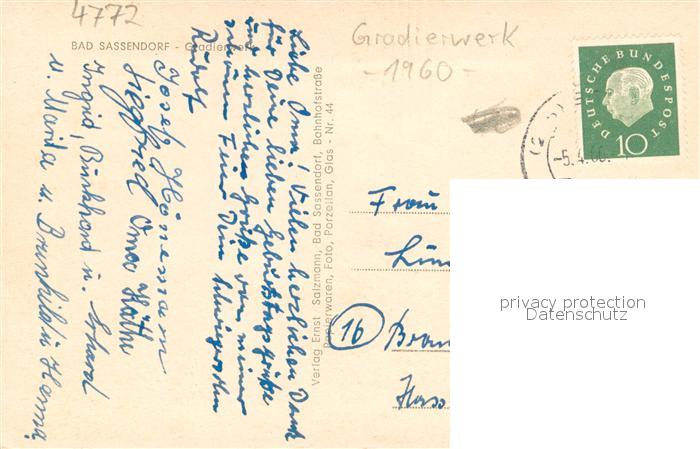 4772
BAD SASSENDORF - Gradierwerk
Gradierwerk
-1960-
DEUTSCHE BUNDESPOST
10
-5.4.60.
Liebe Oma! Vielen herzlichen Dank
für Deine lieben Geburtstagsgrüße
und herzlichen Grüße von meiner
Dein Schwiegersohn
Rudolf
Josef Hönemann
Siegfried Oma Käthe
Ingrid, Burkhard u. Erhard
u. Marita u. Brunhilde Hanna
Verlag Ernst Salzmann, Bad Sassendorf, Bahnhofstraße
Papierwaren, Foto, Porzellan, Glas - Nr. 44
Frau
16
privacy protection
Datenschutz